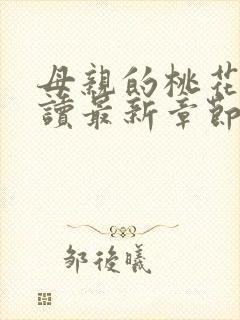 母親的桃花
讀最新章節
邹後曦